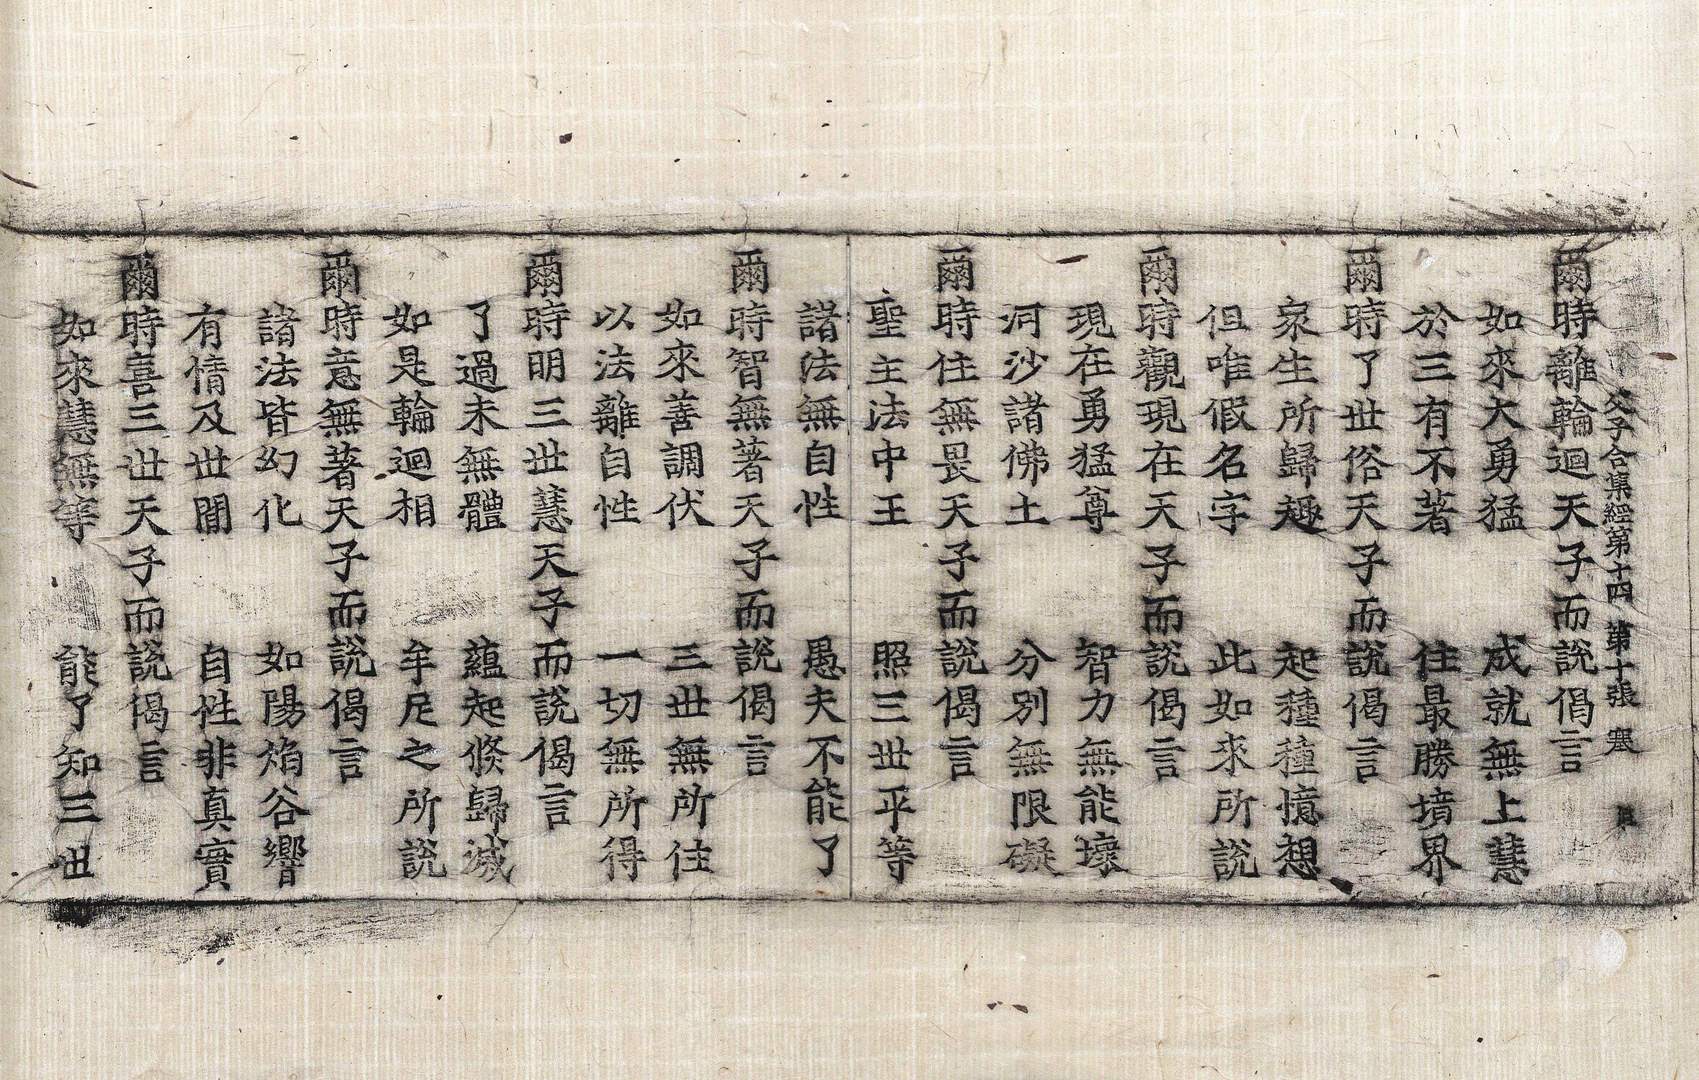 父子合集經第十四 第十張 寒
爾時離輪迴天子而說偈言
如來大勇猛 成就無上慧
於三有不著 住最勝境界
爾時了世俗天子而說偈言
衆生所歸趣 起種種憶想
但唯假名字 此如來所說
爾時觀現在天子而說偈言
現在勇猛尊 智力無能壞
河沙諸佛土 分別無限礙
爾時住無畏天子而說偈言
聖主法中王 照三世平等
諸法無自性 愚夫不能了
爾時智無著天子而說偈言
如來善調伏 三世無所住
以法離自性 一切無所得
爾時明三世慧天子而說偈言
了過未無體 蘊起倏歸滅
如是輪迴相 牟尼之所說
爾時意無著天子而說偈言
諸法皆幻化 如陽焰谷響
有情及世間 自性非真實
爾時喜三世天子而說偈言
如來慧無等 能了知三世